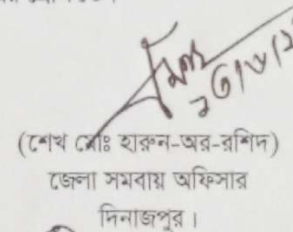 (শেখ মোঃ হারুন-অর-রশিদ)
জেলা সমবায় অফিসার
দিনাজপুর।